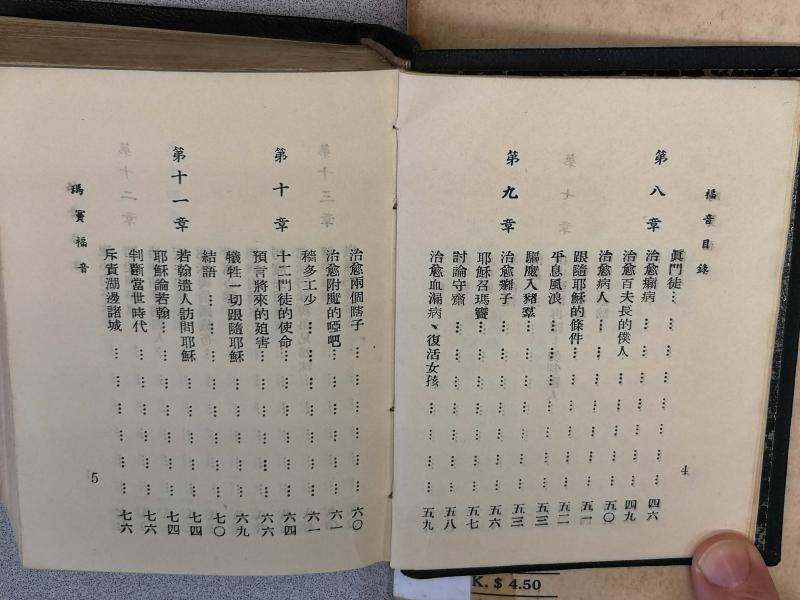 福音目錄
眞門徒 … … … … … … 四六
第八章 治愈癩病 … … … … … … 四九
治愈百夫長的僕人 … … … … 五〇
治愈病人 … … … … … … 五一
跟隨耶穌的條件 … … … … 五二
平息風浪 … … … … … … 五三
驅魔入豬羣 … … … … … 五三
第九章 治愈癱子 … … … … … … 五六
耶穌召瑪竇 … … … … … 五七
討論守齋 … … … … … … 五八
治愈血漏病、復活女孩 … … … … 五九
4
治愈兩個瞎子 … … … … … … 六〇
治愈附魔的啞吧 … … … … … 六一
穡多工少 … … … … … … 六一
第十章 十二門徒的使命 … … … … … 六四
預言將來的迫害 … … … … … 六六
犧牲一切跟隨耶穌 … … … … … 六九
結語 … … … … … … … 七〇
第十一章 若翰遣人訪問耶穌 … … … … … 七四
耶穌論若翰 … … … … … … 七四
判斷當世時代 … … … … … 七六
斥責湖邊諸城 … … … … … … 七六
瑪竇福音
5
K. $ 4.50